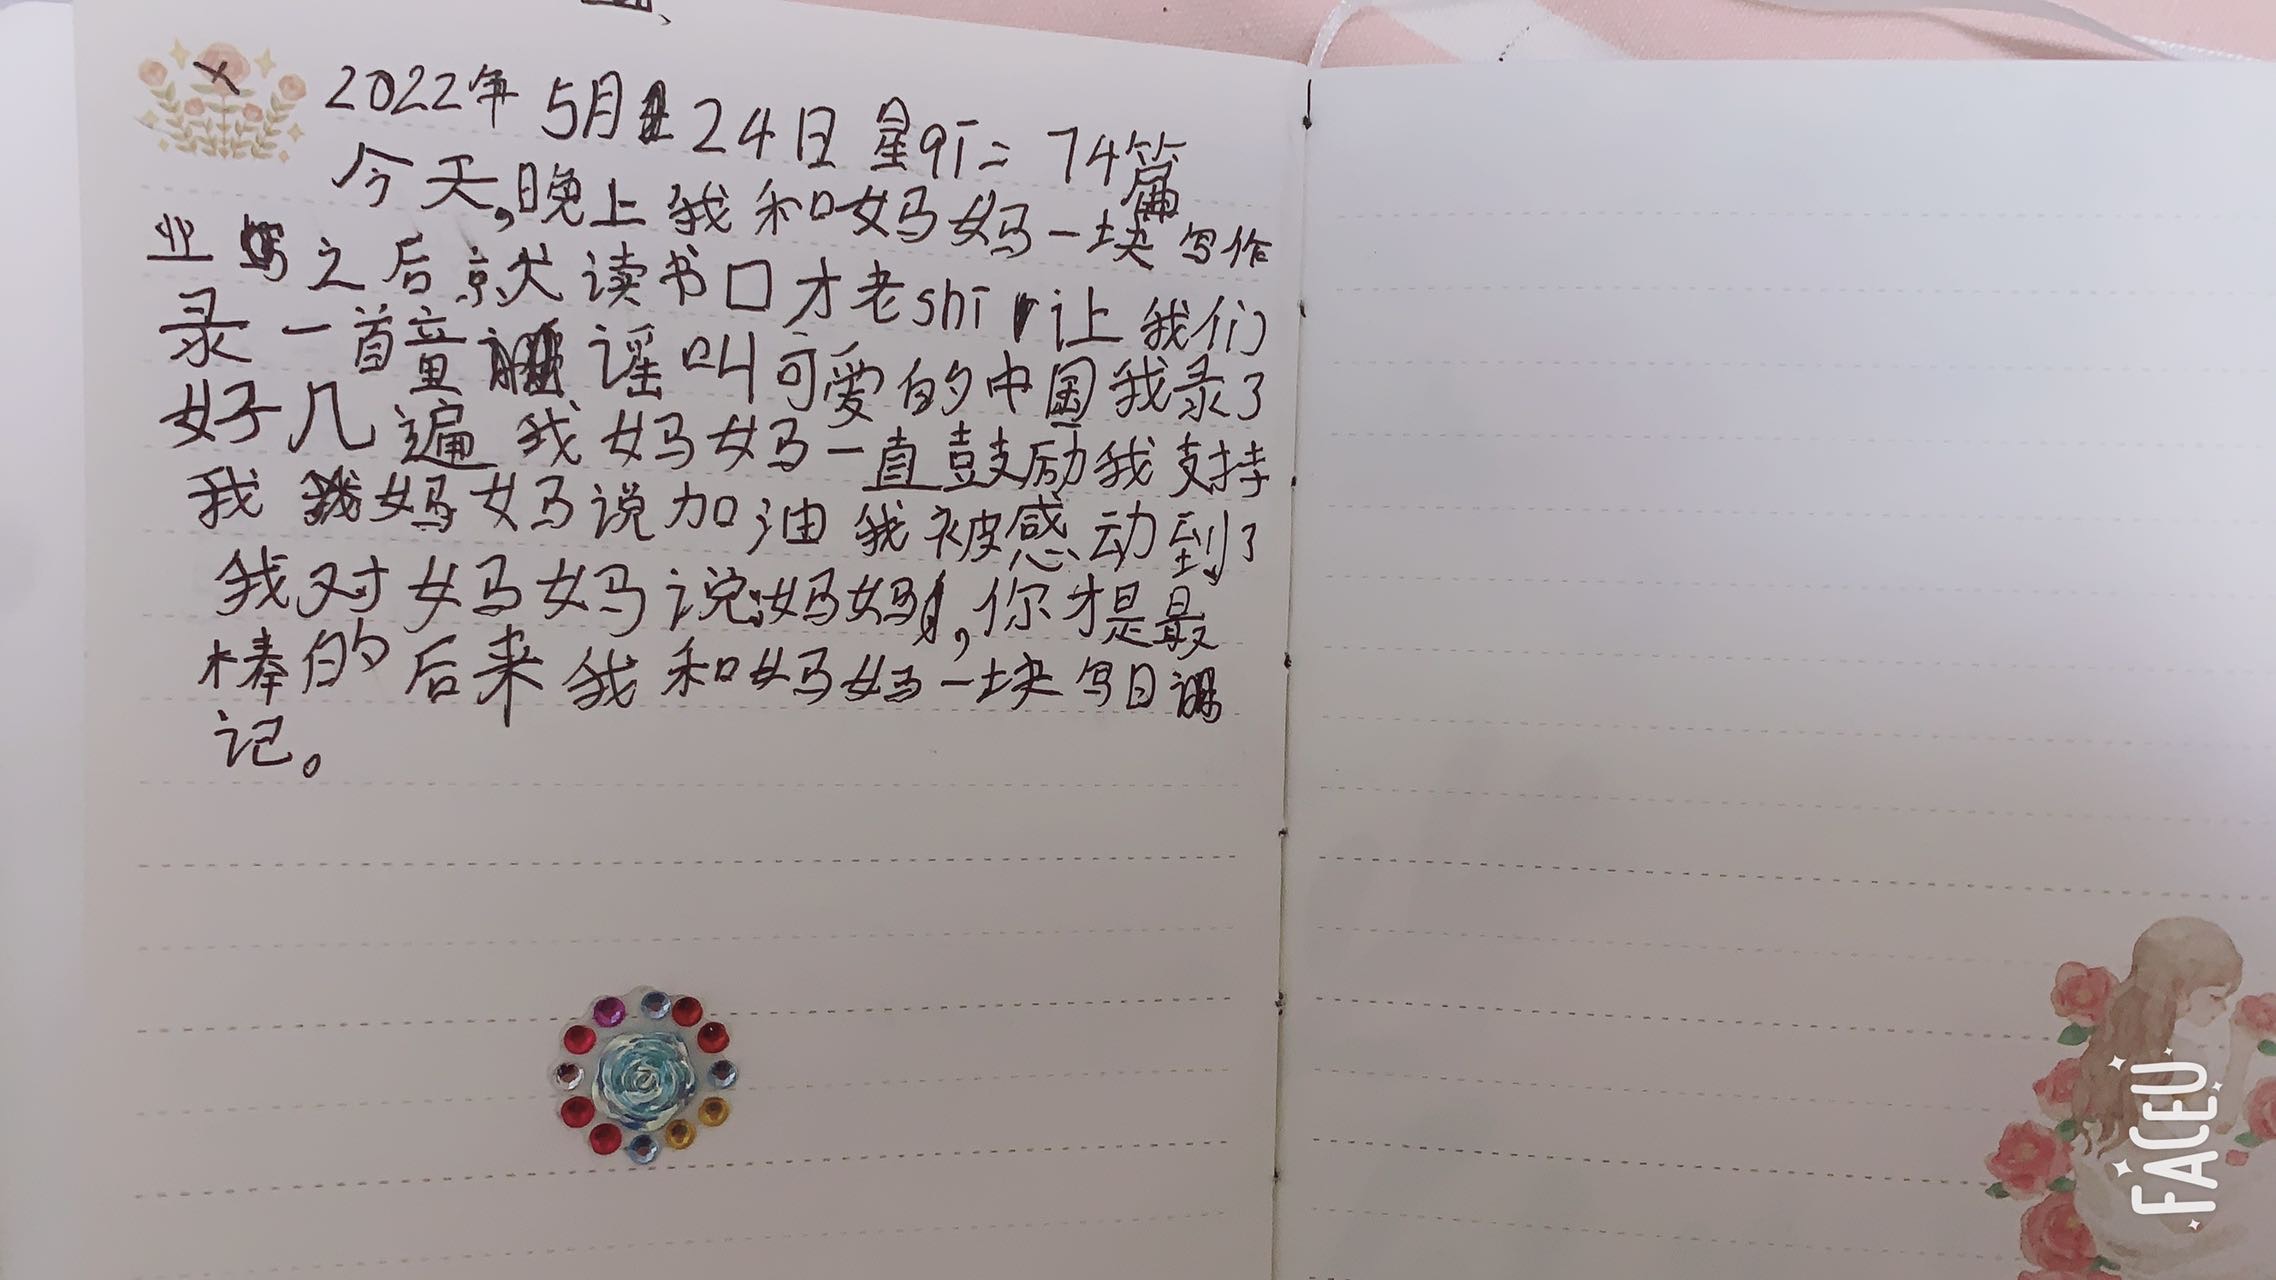 2022年5月24日星qī二 74篇
今天,晚上我和妈妈一块写作
业之后就读书口才老shī让我们
录一首童谣叫可爱的中国我录了
好几遍我妈妈一直鼓励我支持
我妈妈说加油我被感动到了
我对妈妈说:妈妈,你才是最
棒的后来我和妈妈一块写日
记。
FACEU